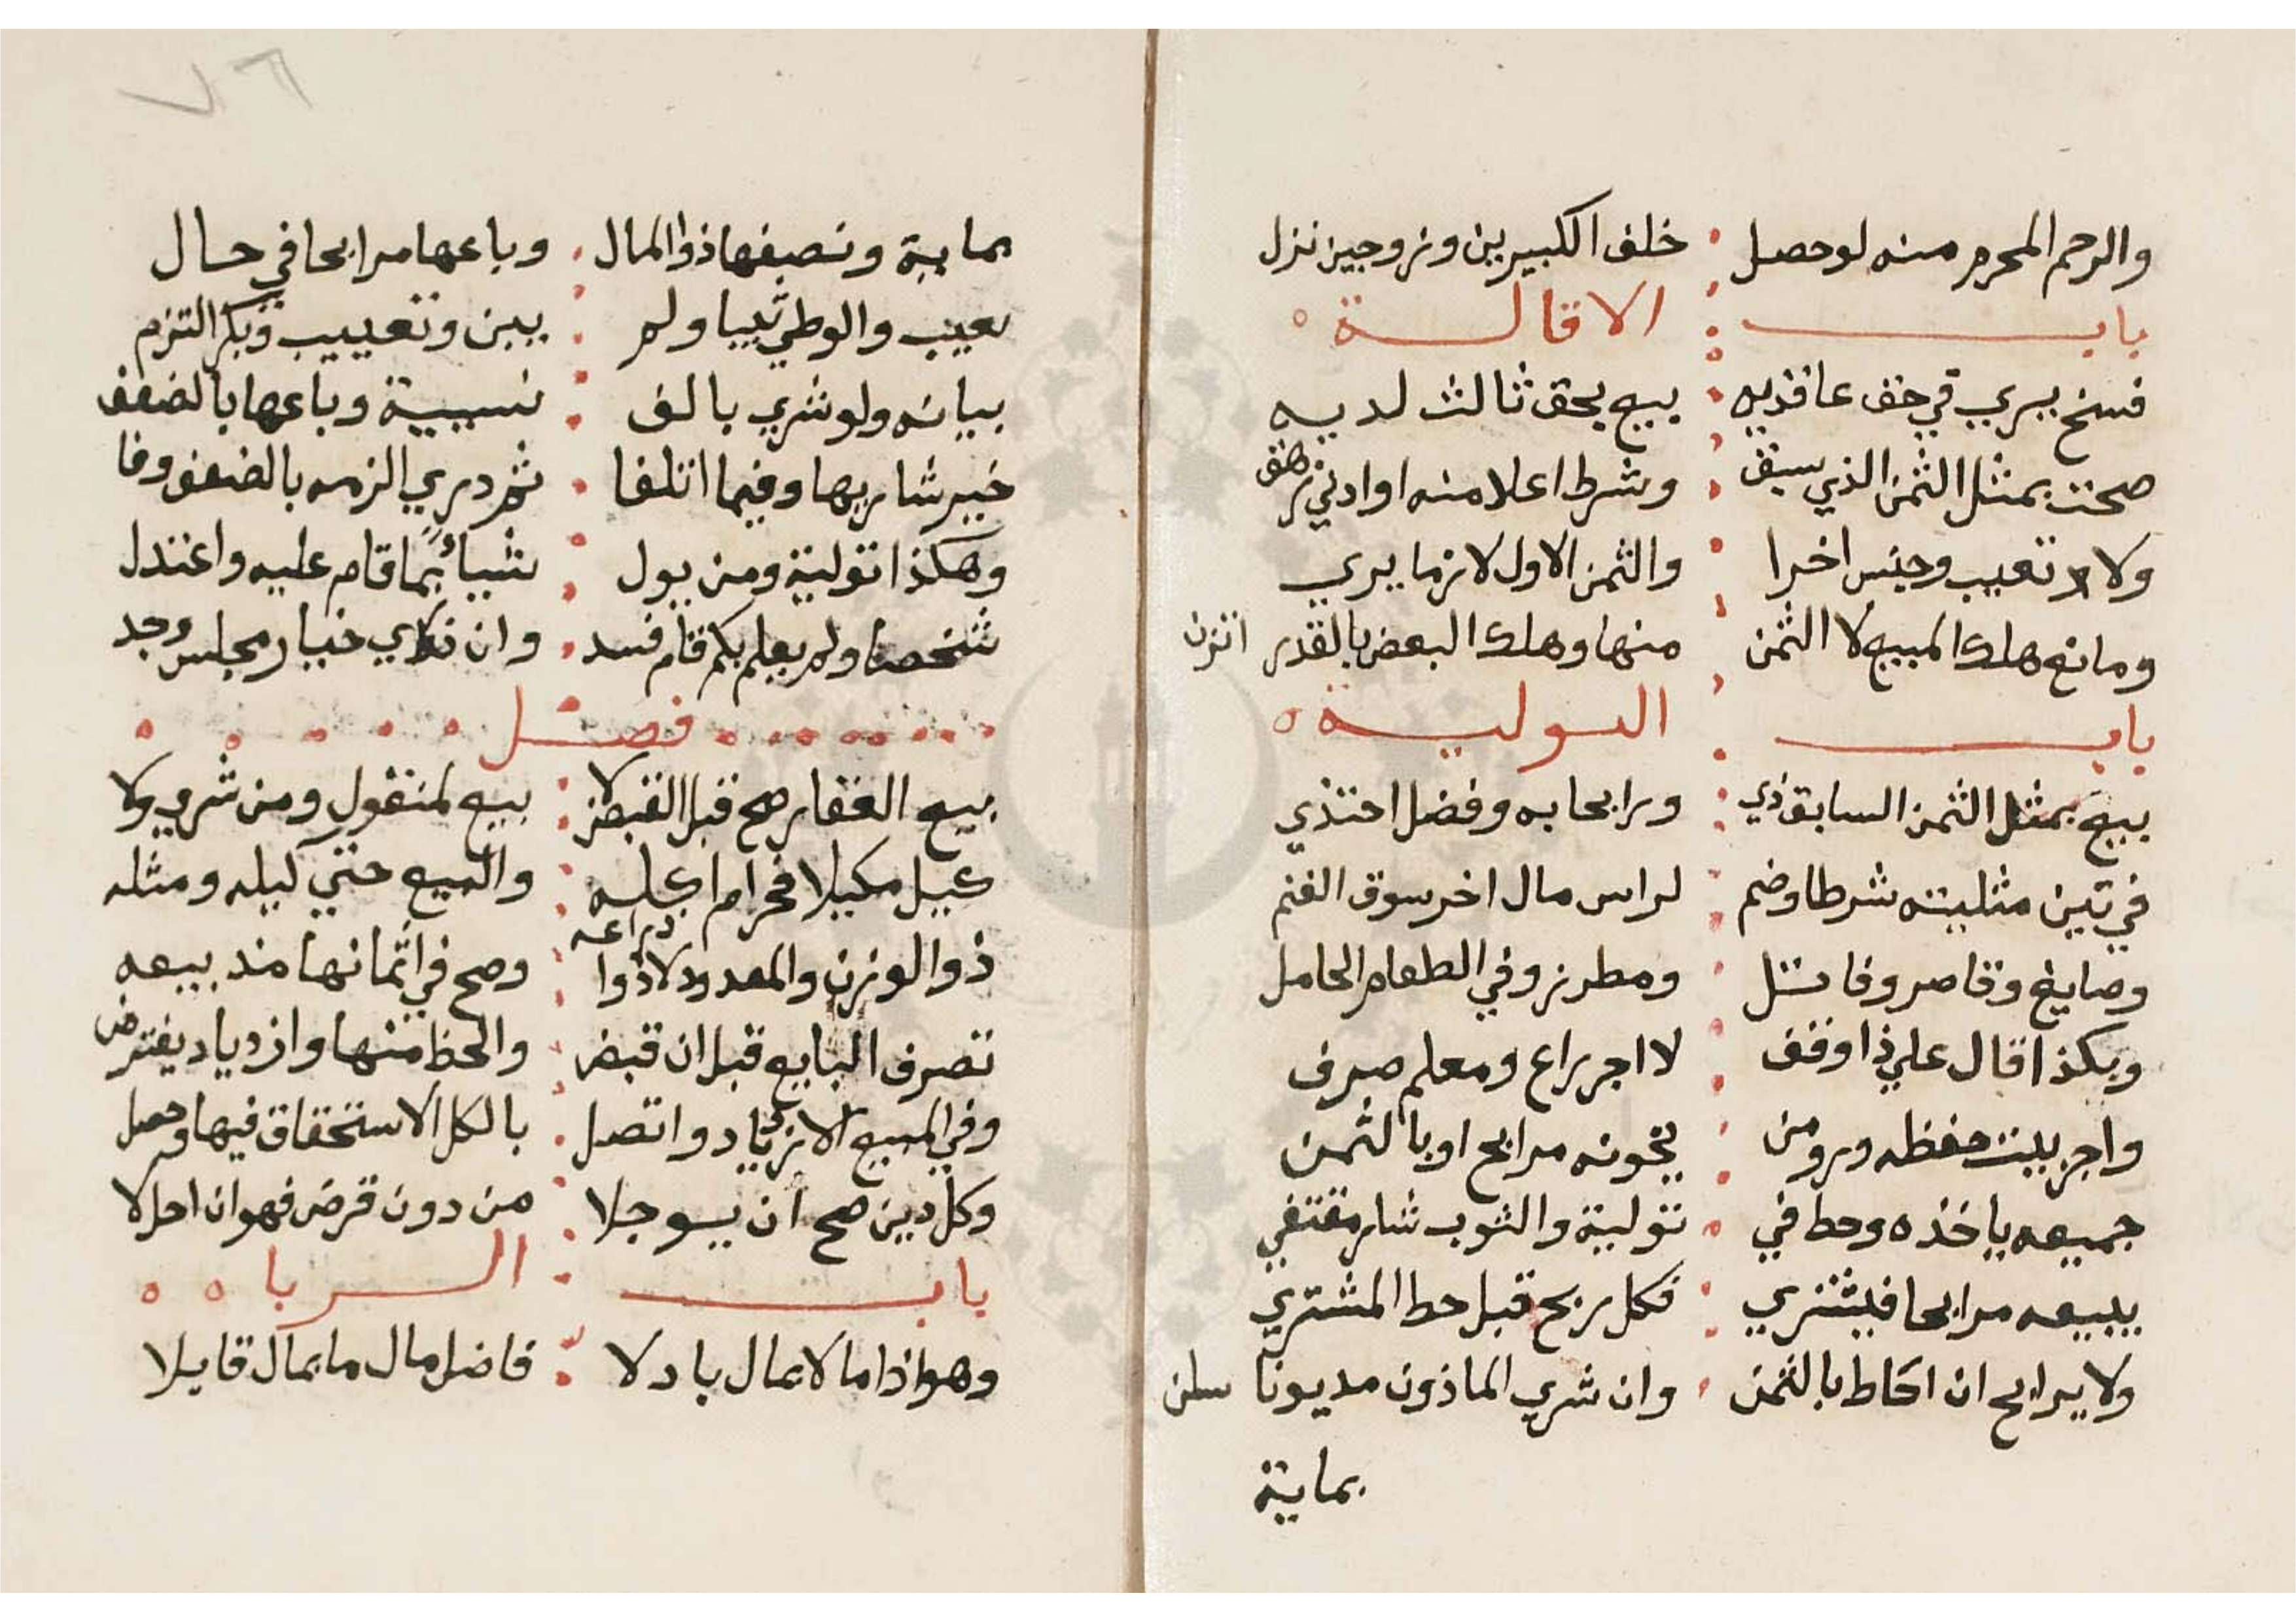 والرحم المحرم منه لو حصل خلف الكبيرين وزوجين نزل
باب الاقالة
فسخ يري في حق عاقديه بيع بحق ثالث لديه
صحت بمثل الثمن الذي سبق وشرط اعلا منه او ادني
ولا تعيب وجنس اخرا والثمن الاول لازما يري
ومانع هلك المبيع لا الثمن منها وهلك البعض بالقدر اتزن
باب التولية
بيع بمثل الثمن السابق ذي ورابحا به وفضل احتذي
في تين مثليته شرطا وضم لراس مال اخر سوق الغنم
وصايغ وقاصر وفاتل ومطرز وفي الطعام الحامل
وبكذا قال علي ذا وقف لا اجر راع ومعلم صرف
واجر بيت حفظه ورومن يخونه مرابح او بالثمن
جميعه ياخذه وحط في تولية والثوب شار مقتفي
يبيعه مرابحا فيشتري فكل ربح قبل حط المشتري
ولا يرابح ان احاط بالثمن وان شري الماذون مديونا
بماية
٧٦
بماية ونصفها ذو المال وباعها مرابحا في حال
بعيب والوطي ثيبا ولم يبن وتعييب وبكر التزم
بيانه ولو شري بالف نسيية وباعها بالضعف
خير شاريها وفيما اتلفا ثم دري الزمه بالضعف وفا
وهكذا تولية ومن يول شيا بما قام عليه واعتدل
شخصا ولم يعلم بكم قام فسد وان خيار مجلس وجد
فصل
بيع العقار صح قبل القبض لا بيع لمنقول ومن شري ولا
كيل مكيلا فحرام اكله والبيع حتي كيله ومثله
ذو الوزن والمعدود لا ذو ذراعه وصح في اثمانها منذ بيعه
تصرف البايع قبل ان قبض والحط منها وازدياد يفترض
وفي المبيع الازدياد واتصل بالكل الاستحقاق فيها وحصل
وكل دين صح ان يوجلا من دون قرض فهو ان احل لا
باب الربا
وهو اذا مالا بمال بادلا فاضل مال ما بمال قابلا